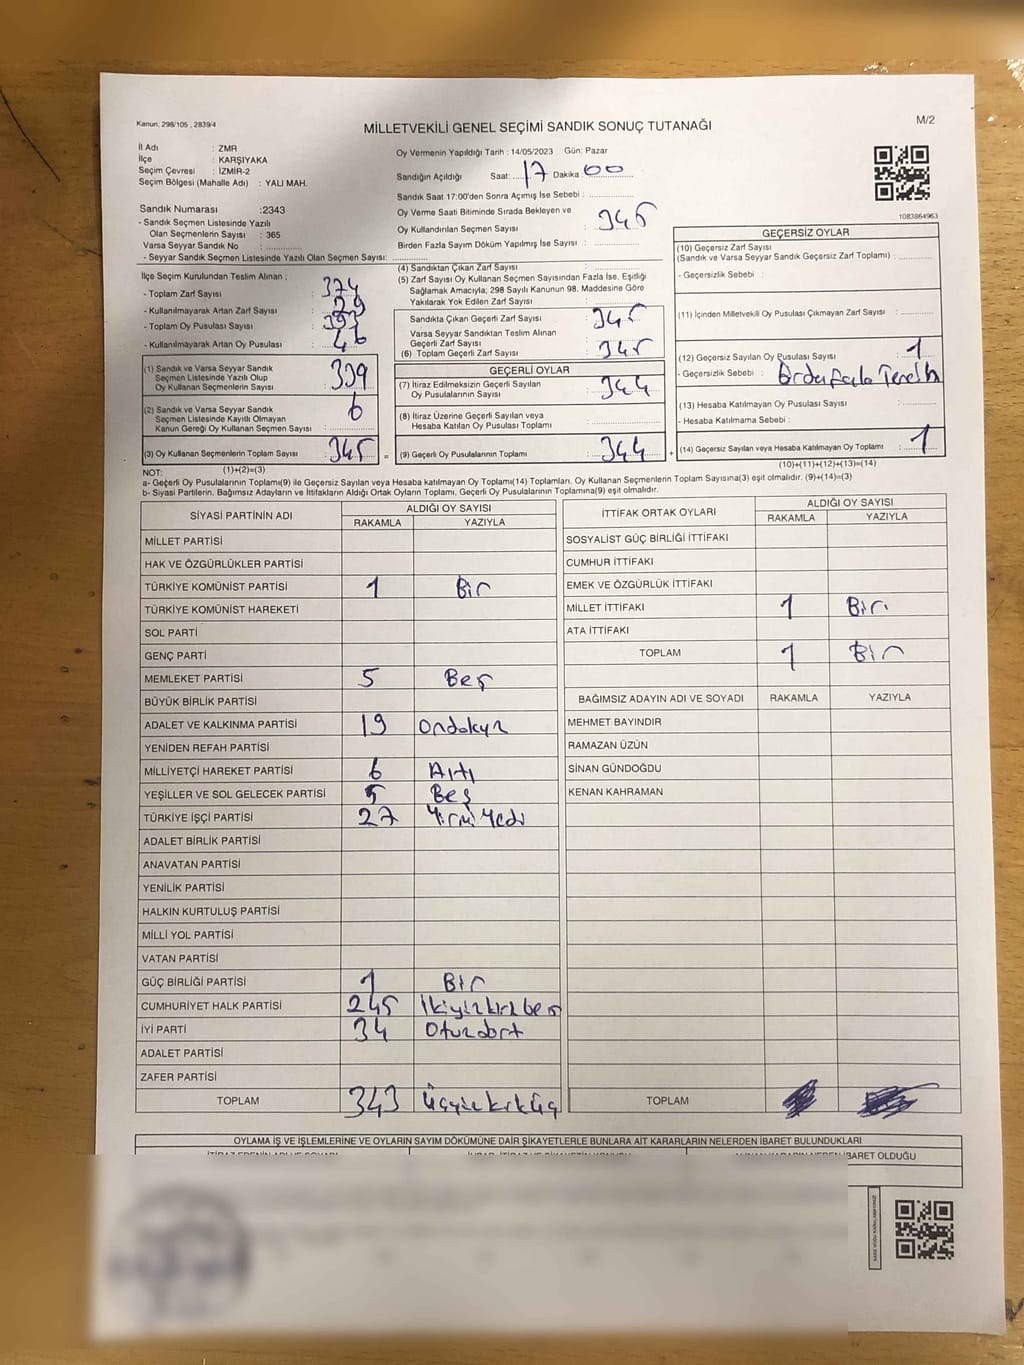 Kanun; 298/105 , 2839/4
M/2
MİLLETVEKİLİ GENEL SEÇİMİ SANDIK SONUÇ TUTANAĞI
İl Adı : ZMR
İlçe : KARŞIYAKA
Seçim Çevresi : İZMİR-2
Seçim Bölgesi (Mahalle Adı) : YALI MAH.
Oy Vermenin Yapıldığı Tarih : 14/05/2023 Gün: Pazar
Sandığın Açıldığı Saat: 17 Dakika 00
Sandık Saat 17:00'den Sonra Açımış İse Sebebi :
Oy Verme Saati Bitiminde Sırada Bekleyen ve
Oy Kullandırılan Seçmen Sayısı : 345
Birden Fazla Sayım Döküm Yapılmış İse Sayısı :
1083864963
Sandık Numarası :2343
- Sandık Seçmen Listesinde Yazılı
Olan Seçmenlerin Sayısı : 365
Varsa Seyyar Sandık No :
- Seyyar Sandık Seçmen Listesinde Yazılı Olan Seçmen Sayısı:
İlçe Seçim Kurulundan Teslim Alınan ;
- Toplam Zarf Sayısı : 374
- Kullanılmayarak Artan Zarf Sayısı : 29
- Toplam Oy Pusulası Sayısı :
- Kullanılmayarak Artan Oy Pusulası : 46
(1) Sandık ve Varsa Seyyar Sandık
Seçmen Listesinde Yazılı Olup
Oy Kullanan Seçmenlerin Sayısı : 339
(2) Sandık ve Varsa Seyyar Sandık
Seçmen Listesinde Kayıtlı Olmayan
Kanun Gereği Oy Kullanan Seçmen Sayısı : 6
(3) Oy Kullanan Seçmenlerin Toplam Sayısı : 345
(1)+(2)=(3)
(4) Sandıktan Çıkan Zarf Sayısı :
(5) Zarf Sayısı Oy Kullanan Seçmen Sayısından Fazla İse, Eşitliği
Sağlamak Amacıyla; 298 Sayılı Kanunun 98. Maddesine Göre
Yakılarak Yok Edilen Zarf Sayısı :
Sandıkta Çıkan Geçerli Zarf Sayısı : 345
Varsa Seyyar Sandıktan Teslim Alınan
Geçerli Zarf Sayısı :
(6) Toplam Geçerli Zarf Sayısı : 345
GEÇERLİ OYLAR
(7) İtiraz Edilmeksizin Geçerli Sayılan
Oy Pusulalarının Sayısı : 344
(8) İtiraz Üzerine Geçerli Sayılan veya
Hesaba Katılan Oy Pusulası Toplamı :
(9) Geçerli Oy Pusulalarının Toplamı : 344
GEÇERSİZ OYLAR
(10) Geçersiz Zarf Sayısı
(Sandık ve Varsa Seyyar Sandık Geçersiz Zarf Toplamı) :
- Geçersizlik Sebebi :
(11) İçinden Milletvekili Oy Pusulası Çıkmayan Zarf Sayısı :
(12) Geçersiz Sayılan Oy Pusulası Sayısı : 1
- Geçersizlik Sebebi : Birden fazla Tercih
(13) Hesaba Katılmayan Oy Pusulası Sayısı :
- Hesaba Katılmama Sebebi :
(14) Geçersiz Sayılan veya Hesaba Katılmayan Oy Toplamı : 1
(10)+(11)+(12)+(13)=(14)
NOT:
a- Geçerli Oy Pusulalarının Toplamı(9) ile Geçersiz Sayılan veya Hesaba katılmayan Oy Toplamı(14) Toplamları, Oy Kullanan Seçmenlerin Toplam Sayısına(3) eşit olmalıdır. (9)+(14)=(3)
b- Siyasi Partilerin, Bağımsız Adayların ve İttifakların Aldığı Ortak Oyların Toplamı, Geçerli Oy Pusulalarının Toplamına(9) eşit olmalıdır.
SİYASİ PARTİNİN ADI ALDIĞI OY SAYISI
RAKAMLA YAZIYLA
MİLLET PARTİSİ
HAK VE ÖZGÜRLÜKLER PARTİSİ
TÜRKİYE KOMÜNİST PARTİSİ 1 Bir
TÜRKİYE KOMÜNİST HAREKETİ
SOL PARTİ
GENÇ PARTİ
MEMLEKET PARTİSİ 5 Beş
BÜYÜK BİRLİK PARTİSİ
ADALET VE KALKINMA PARTİSİ 19 Ondokuz
YENİDEN REFAH PARTİSİ
MİLLİYETÇİ HAREKET PARTİSİ 6 Altı
YEŞİLLER VE SOL GELECEK PARTİSİ 5 Beş
TÜRKİYE İŞÇİ PARTİSİ 27 Yirmi Yedi
ADALET BİRLİK PARTİSİ
ANAVATAN PARTİSİ
YENİLİK PARTİSİ
HALKIN KURTULUŞ PARTİSİ
MİLLİ YOL PARTİSİ
VATAN PARTİSİ
GÜÇ BİRLİĞİ PARTİSİ 1 Bir
CUMHURİYET HALK PARTİSİ 245 İkiyüzkırkbeş
İYİ PARTİ 34 Otuzdört
ADALET PARTİSİ
ZAFER PARTİSİ
TOPLAM 343 Üçyüzkırküç
İTTİFAK ORTAK OYLARI ALDIĞI OY SAYISI
RAKAMLA YAZIYLA
SOSYALİST GÜÇ BİRLİĞİ İTTİFAKI
CUMHUR İTTİFAKI
EMEK VE ÖZGÜRLÜK İTTİFAKI
MİLLET İTTİFAKI 1 Bir.
ATA İTTİFAKI
TOPLAM 1 Bir
BAĞIMSIZ ADAYIN ADI VE SOYADI RAKAMLA YAZIYLA
MEHMET BAYINDIR
RAMAZAN ÜZÜN
SİNAN GÜNDOĞDU
KENAN KAHRAMAN
TOPLAM
OYLAMA İŞ VE İŞLEMLERİNE VE OYLARIN SAYIM DÖKÜMÜNE DAİR ŞİKAYETLERLE BUNLARA AİT KARARLARIN NELERDEN İBARET BULUNDUKLARI
İBARET OLDUĞU